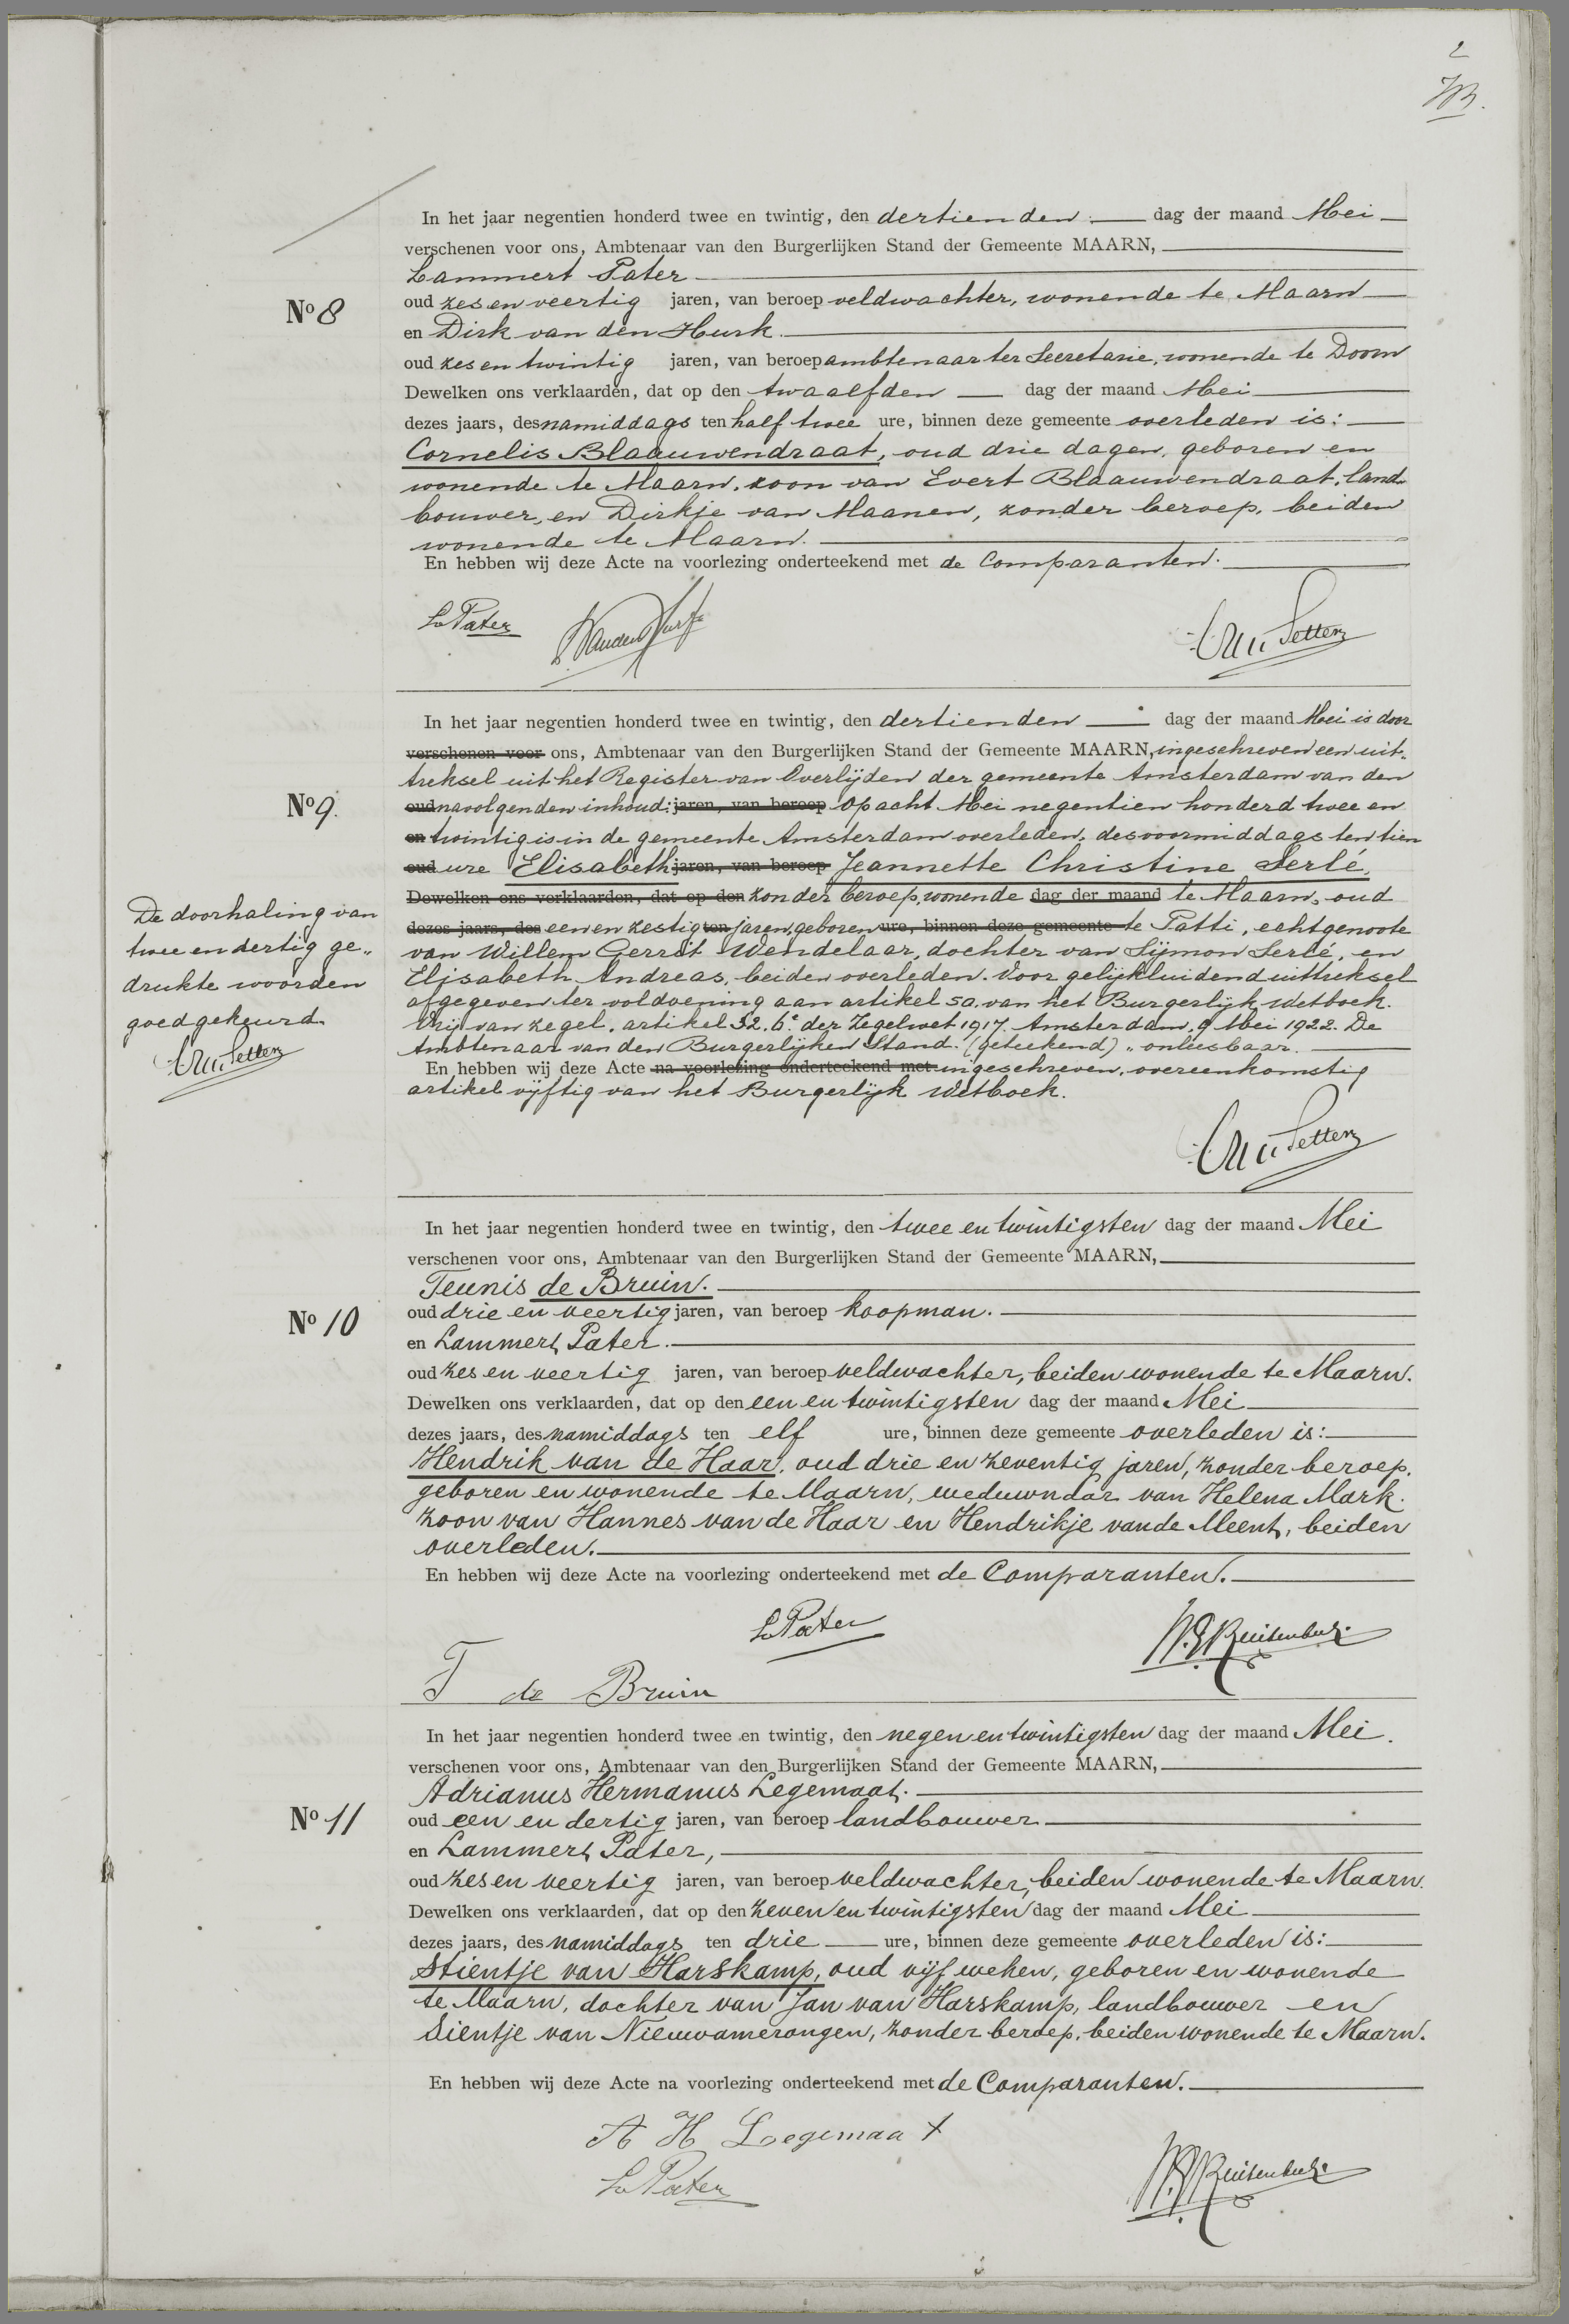 2
In het jaar negentien honderd twee en twintig, den dertienden dag der maand Mei
verschenen voor ons, Ambtenaar van den Burgerlijken Stand der Gemeente MAARN,
Lammert Pater
No 8
oud zes en veertig jaren, van beroep veldwachter, wonende te Maarn
en Dirk van den Hurk.
oud zes en twintig jaren, van beroep ambtenaar ter Secretarie, wonende te Doorn
Dewelken ons verklaarden, dat op den twaalfden dag der maand Mei
dezes jaars, des namiddags ten half twee ure, binnen deze gemeente overleden is:
Cornelis Blaauwendraat, oud drie dagen, geboren en
wonende te Maarn, zoon van Evert Blaauwendraat, land-
bouwer, en Dirkje van Maanen, zonder beroep, beiden
wonende te Maarn.
En hebben wij deze Acte na voorlezing onderteekend met de Comparanten.
L. Pater D. van den Hurk
In het jaar negentien honderd twee en twintig, den dertienden dag der maand Mei is door
verschenen voor ons, Ambtenaar van den Burgerlijken Stand der Gemeente MAARN, ingeschreven een uit-
treksel uit het Register van Overlijden der gemeente Amsterdam van den
No 9.
oud navolgenden inhoud: jaren, van beroep Op acht Mei negentien honderd twee en
en twintig is in de gemeente Amsterdam overleden, des voormiddags ten tien
oud ure Elisabeth jaren, van beroep Jeannette Christine Serlé,
Dewelken ons verklaarden, dat op den zonder beroep, wonende dag der maand te Maarn, oud
dezes jaars, des een en zestig ten jaren, geboren ure, binnen deze gemeente te Patti, echtgenoote
van Willem Gerrit Wendelaar, dochter van Sijmon Serlé, en
Elisabeth Andreas, beiden overleden. Voor gelijkluidend uittreksel
afgegeven ter voldoening aan artikel 50 van het Burgerlijk Wetboek.
Vrij van zegel, artikel 32. 6e der Zegelwet 1917. Amsterdam, 9 Mei 1922. De
Ambtenaar van den Burgerlijken Stand. (geteekend) „ onleesbaar.
En hebben wij deze Acte na voorlezing onderteekend met ingeschreven, overeenkomstig
artikel vijftig van het Burgerlijk Wetboek.
De doorhaling van
twee en dertig ge-
drukte woorden
goedgekeurd.
In het jaar negentien honderd twee en twintig, den twee en twintigsten dag der maand Mei
verschenen voor ons, Ambtenaar van den Burgerlijken Stand der Gemeente MAARN,
Teunis de Bruin.
No 10
oud drie en veertig jaren, van beroep koopman.
en Lammert Pater.
oud zes en veertig jaren, van beroep veldwachter, beiden wonende te Maarn.
Dewelken ons verklaarden, dat op den een en twintigsten dag der maand Mei
dezes jaars, des namiddags ten elf ure, binnen deze gemeente overleden is:
Hendrik van de Haar, oud drie en zeventig jaren, zonder beroep,
geboren en wonende te Maarn, weduwnaar van Helena Mark.
zoon van Hannes van de Haar en Hendrikje van de Meent, beiden
overleden.
En hebben wij deze Acte na voorlezing onderteekend met de Comparanten.
L. Pater
T de Bruin
In het jaar negentien honderd twee en twintig, den negen en twintigsten dag der maand Mei.
verschenen voor ons, Ambtenaar van den Burgerlijken Stand der Gemeente MAARN,
Adrianus Hermanus Legemaat.
No 11
oud een en dertig jaren, van beroep landbouwer
en Lammert Pater,
oud zes en veertig jaren, van beroep veldwachter, beiden wonende te Maarn.
Dewelken ons verklaarden, dat op den zeven en twintigsten dag der maand Mei
dezes jaars, des namiddags ten drie ure, binnen deze gemeente overleden is:
Stientje van Harskamp, oud vijf weken, geboren en wonende
te Maarn, dochter van Jan van Harskamp, landbouwer en
Sientje van Nieuwamerongen, zonder beroep, beiden wonende te Maarn.
En hebben wij deze Acte na voorlezing onderteekend met de Comparanten.
A H Legemaat
L. Pater